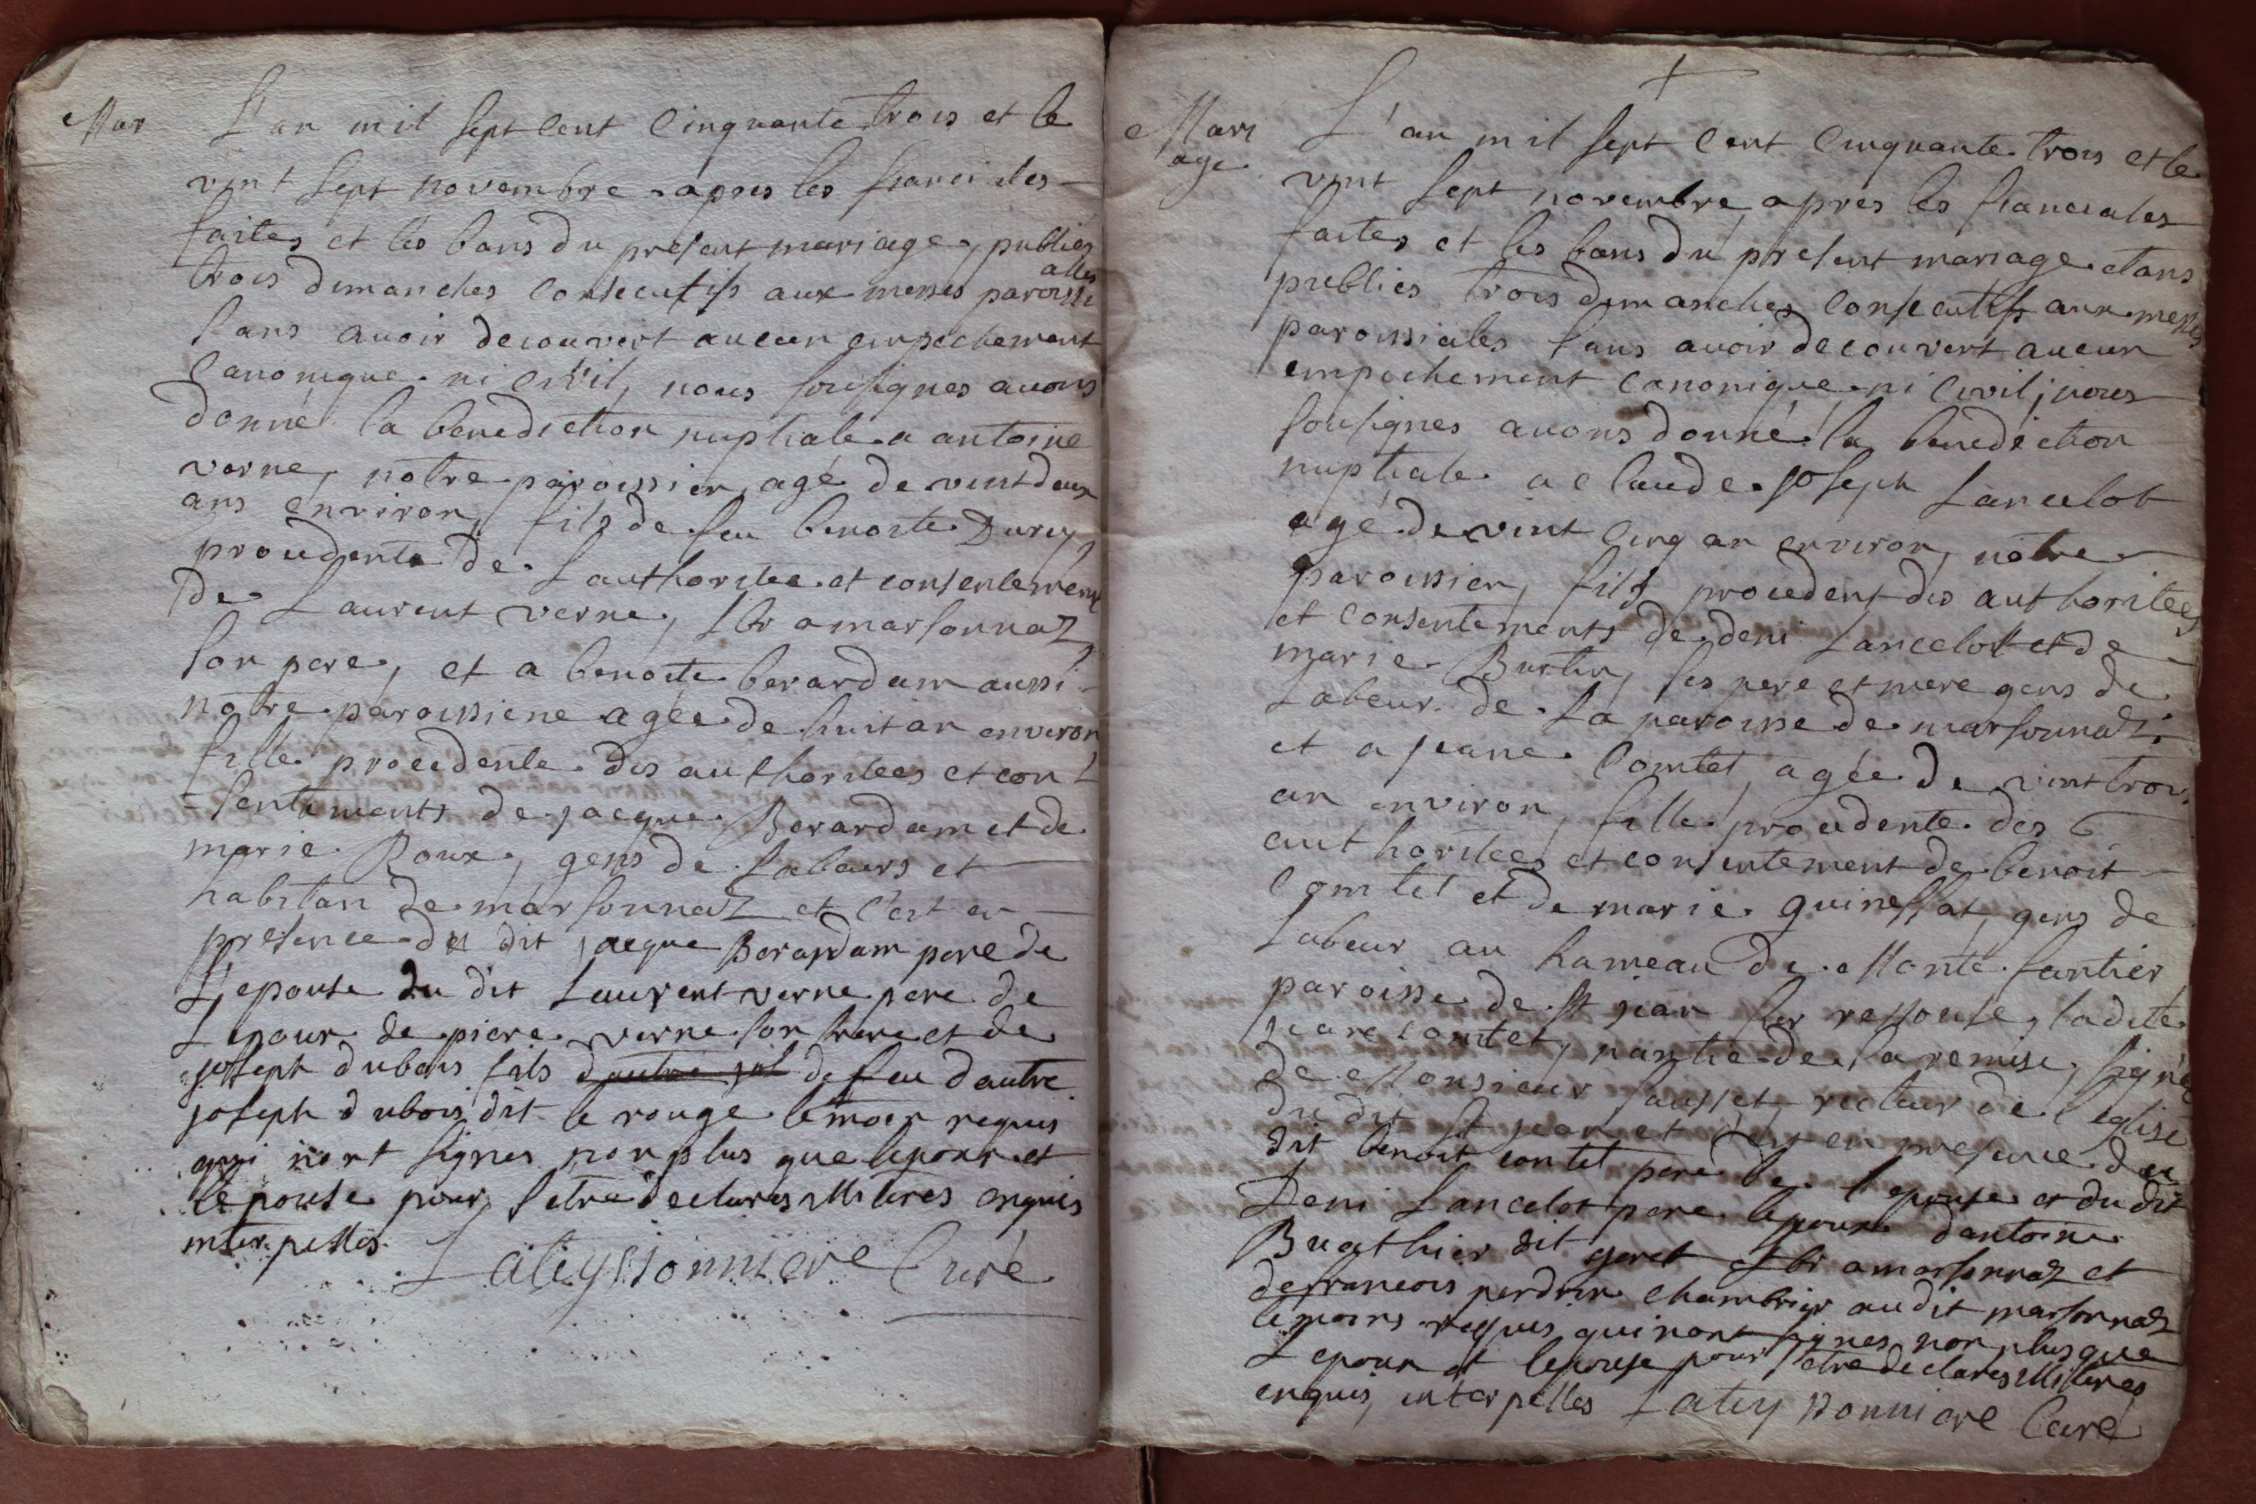 Mar
L'an mil sept cent cinquante trois et le
vint sept novembre apres les fianciales
faites et les bans du present mariage, publies
trois dimanches consecutifs aux messes paroissi
alles
sans avoir decouvert aucun empechement
canonique ni civil, nous sousignes avons
donné la benediction nuptiale a antoine
verne, notre paroissien, agé de vint deux
ans environ, fils de feu benoite Durey
procedente de l'authoritee et consentement
de Laurent verne, lbr a marsonnaz
son pere, et a benoite berardam aussi
notre paroissiene agée de huit an environ
fille procedente des authoritees et con
-sentements de jacque Berardam et de
marie Roux, gens de labeurs et
habitan de marsonnaz et c'est en
presence du dit jacque Berardam pere de
L'epouse du dit Laurent verne pere de
L'epoux de piere verne son frere et de
joseph dubois fils de feu d'autre
joseph dubois dit le rouge temoin requis
qui n'ont signes non plus que lepoux et
lepouse pour s'etre declares illitéres enquis
interpellés. Lateyssonniere Curé
Mari
age
L'an mil sept cent cinquante trois et le
vint sept novembre, apres les fianciales
faites et les bans du present mariage etans
publies trois dimanches consecutifs aux messes
paroissiales sans avoir decouvert aucun
empechement canonique ni civil; nous
sousignes avons donné la benediction
nuptiale a claude joseph Lancelot
agé de vint cinq an environ, notre
paroissien, fils procedent des authoritees
et consentements de deni Lancelot et de
marie Burtin, ses pere et mere gens de
Labeur de La paroisse de marsonnaz;
et a jeane Comtet, agée de vint trois
an environ, fille procedente des
authoritees et consentement de benoit
Comtet et de marie guineffat, gens de
Labeur au hameau de Monte fantier
paroisse de st jean sur ressouse, ladite
jeane comtet, partie de, la remise, signée
de Monsieur sausset recteur de l'eglise
du dit st jean et c'est en presence du
dit benoit contet pere de l'epouse et du dit
Deni Lancelot pere lepoux d'antoine
Bugthier dit goret lbr a marsonnaz et
de francois perdrix chambrier au dit marsonnaz
temoins requis qui n'ont signes non plus que
L'epoux et lepouse pour s'etre declares illitéres
enquis, interpellés Lateyssonniere Curé